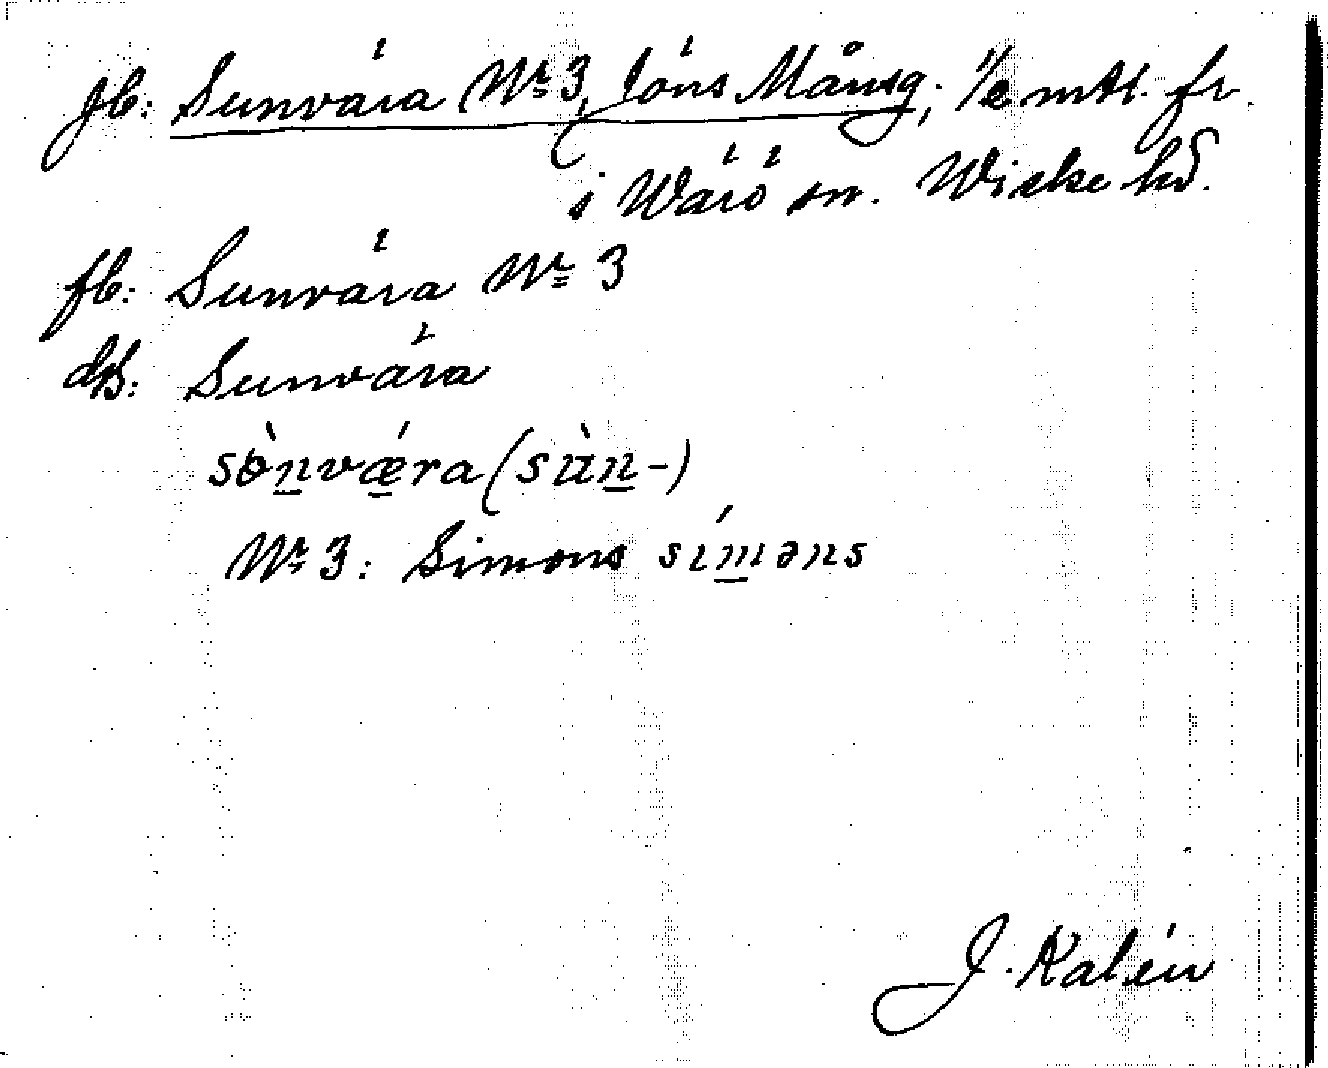 jb: Sunvära Nr 3, Jöns Månsg; 1/2 mtl. fr.
i Värö sn. Wiske hd.
fb: Sunvära Nr 3
db: Sunvära
sònvǽra (sùn-)
Nr 3: Simons síməns
J. Kalén